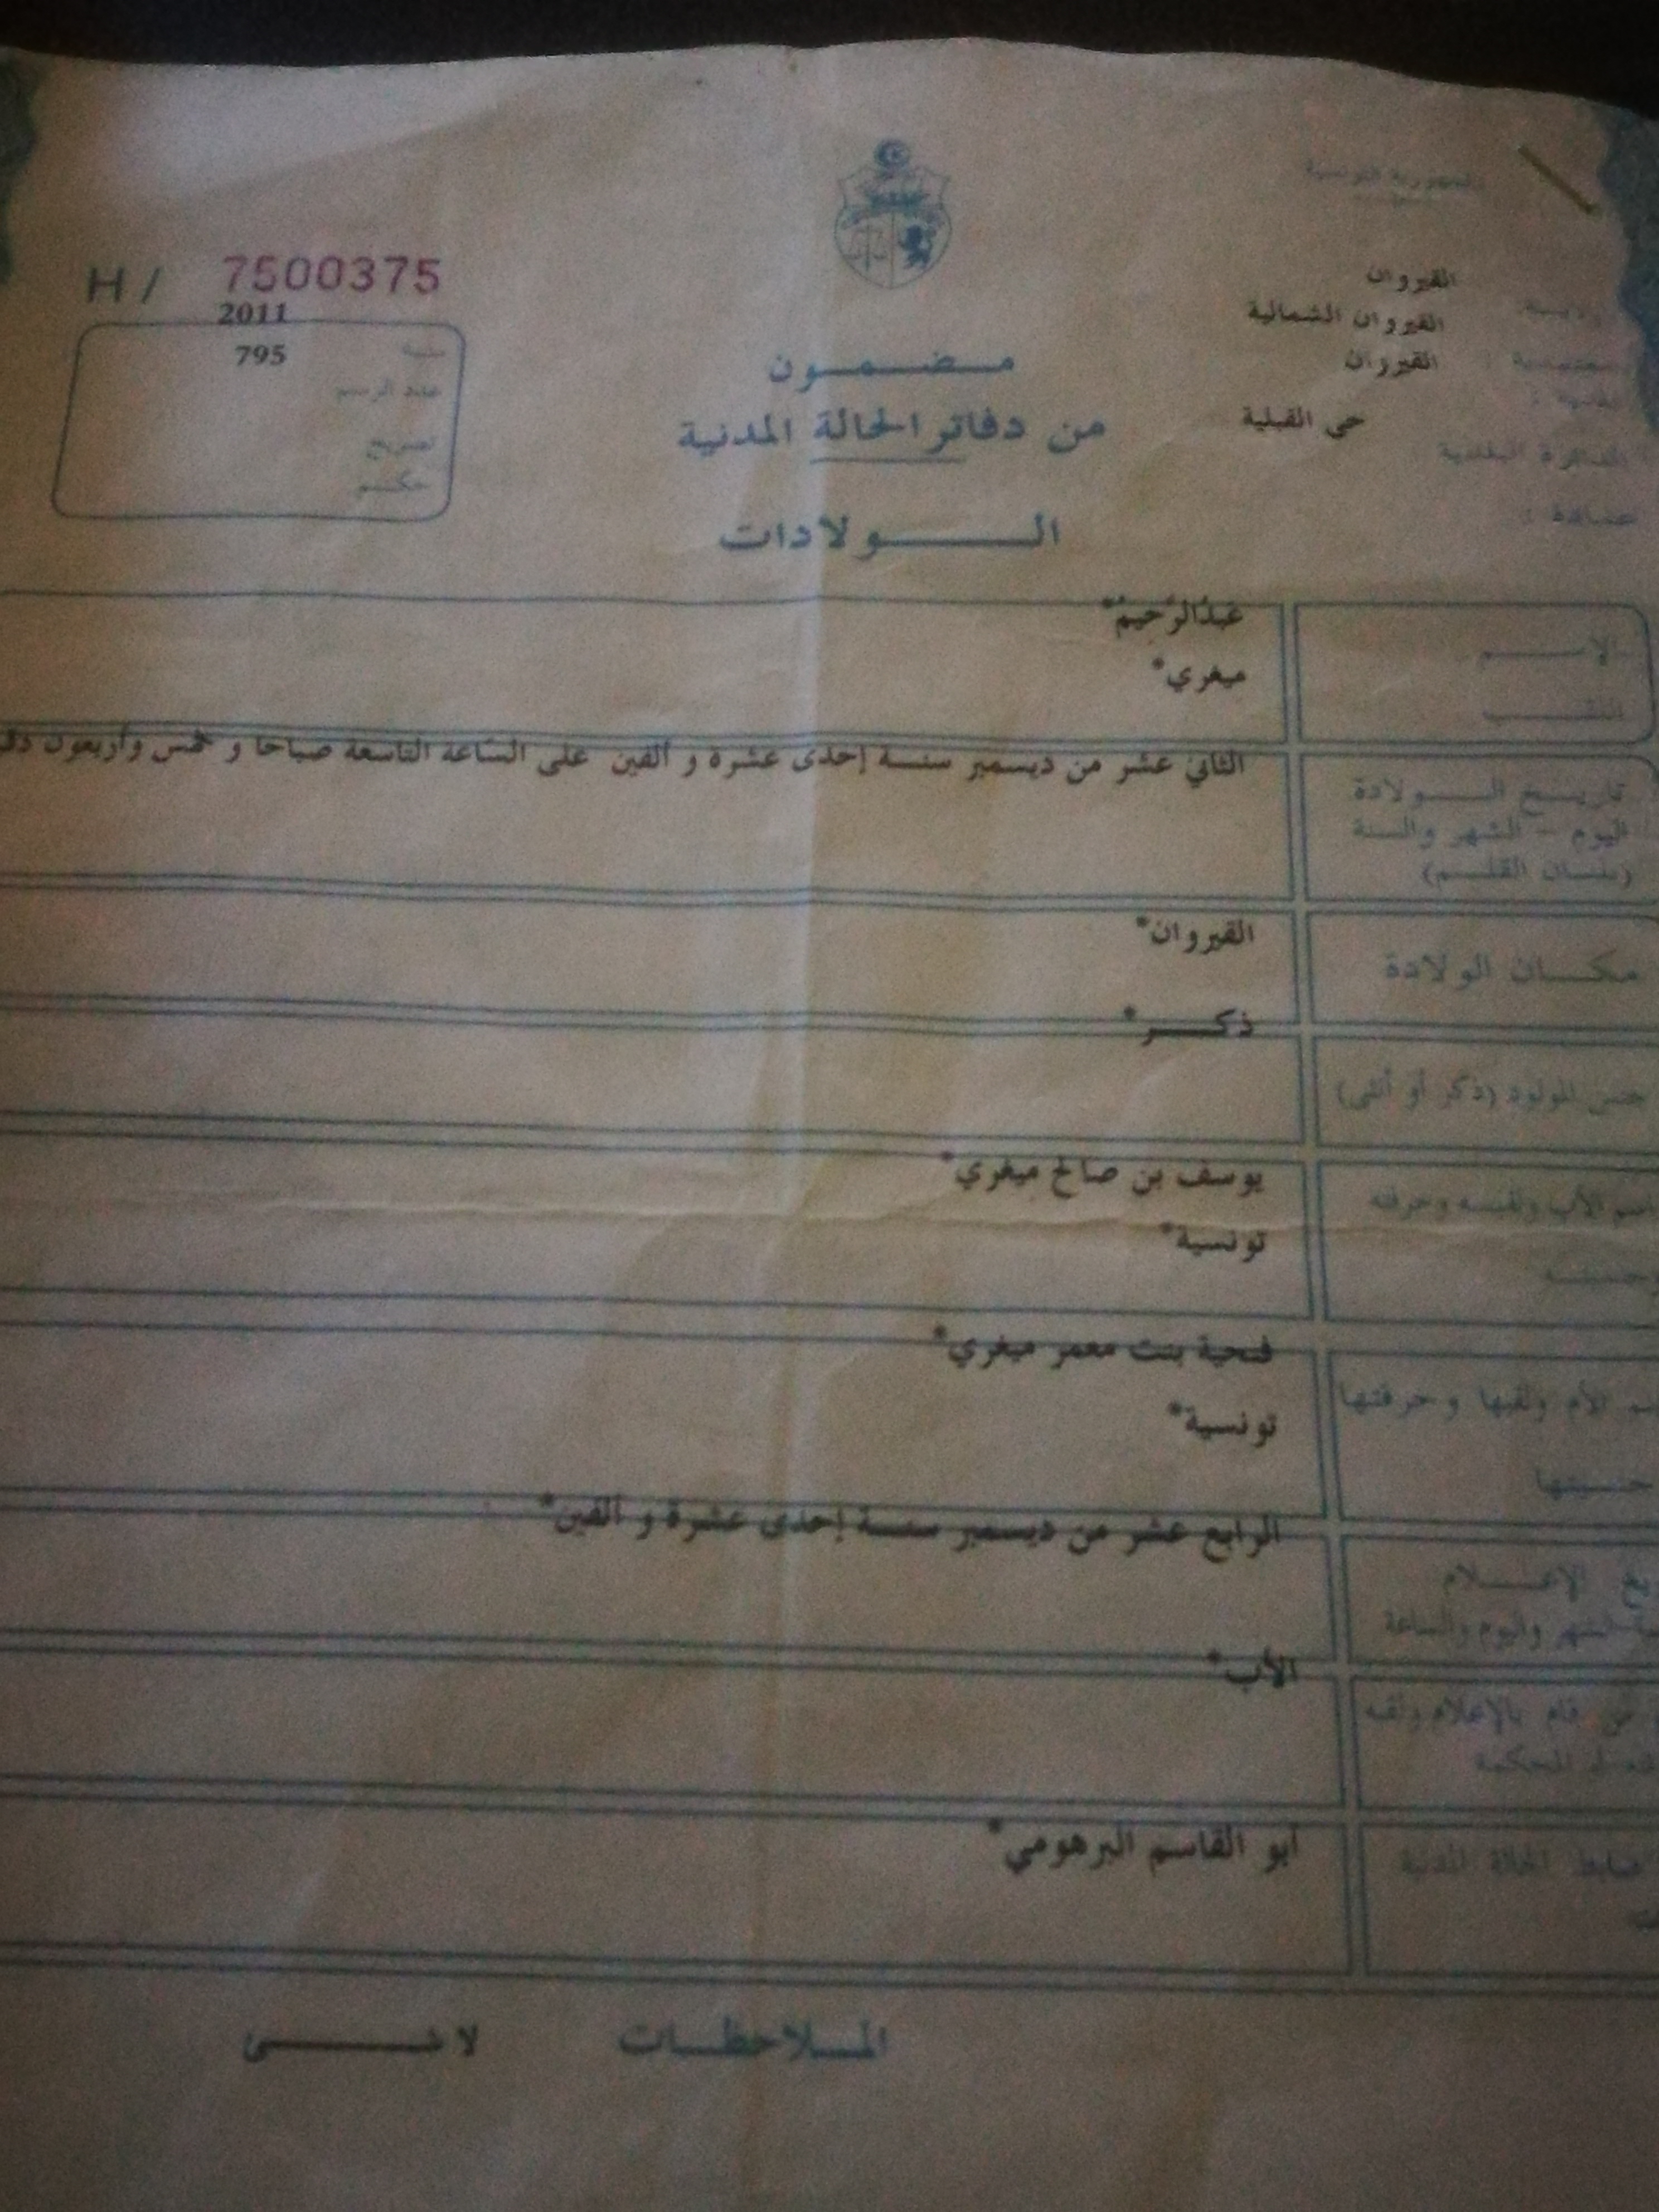 الجمهورية التونسية
القيروان
القيروان الشمالية
القيروان
حي القبلية
الدائرة البلدية
عمادة :
H / 7500375
2011
سنة 795
عدد الرسم
تصريح
حكم
مضمون
من دفاتر الحالة المدنية
الولادات
الاسم عبدالرحيم*
اللقب ميغري*
تاريخ الولادة الثاني عشر من ديسمبر سنة إحدى عشرة و ألفين على الساعة التاسعة صباحا و خمس وأربعون
اليوم - الشهر والسنة
(بلسان القلم)
مكان الولادة القيروان*
ذكر*
جنس المولود (ذكر أو أنثى)
يوسف بن صالح ميغري*
اسم الأب ولقبه وحرفته
تونسية*
فتحية بنت معمر ميغري*
الأم ولقبها وحرفتها
تونسية*
جنسيتها
الرابع عشر من ديسمبر سنة إحدى عشرة و ألفين*
الإعلام
الشهر واليوم والساعة
الأب*
من قام بالإعلام ولقبه
المحكمة
أبو القاسم البرهومي*
ضابط الحالة المدنية
الملاحظات لا شئ